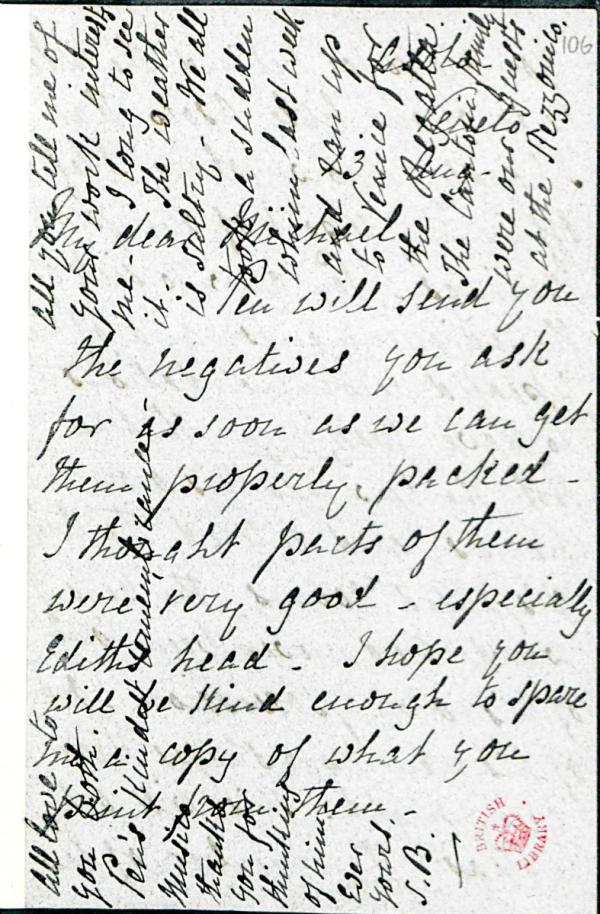 106
Asolo.
Veneto
3 Aug.
My dear Michael,
Pen will send you
the negatives you ask
for as soon as we can get
them properly packed -
I thought parts of them
were very good - especially
Ediths head - I hope you
will be kind enough to spare
me a copy of what you
print from them -
all you tell me of
your work interests
me - I long to see
it. The weather
is sultry - We all
took a sudden
whim last week
and ran up
to Venice for
the Regatta.
The family
were our guests
at the Rezzonico.
All love to
you both.
Pen's kindest remembrances
thanks
you for
thinking
of him
Ever
yours,
S.B.
BRITISH LIBRARY